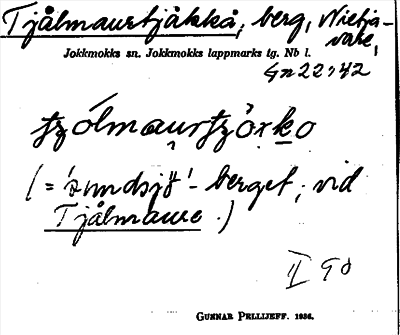 Tjålmaurtjåkkå, berg, Nietjavare,
Jokkmokks sn. Jokkmokks lappmarks tg. Nb l.
Gn 22:42
(= 'sundsjö'-berget; vid
Tjålmaure.)
II 90
GUNNAR PELLIJEFF. 1936.